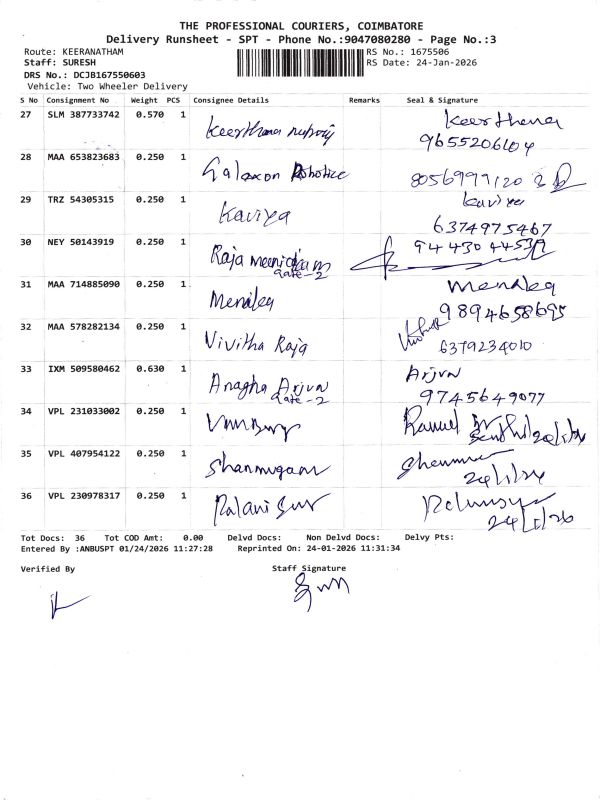 THE PROFESSIONAL COURIERS, COIMBATORE
Delivery Runsheet - SPT - Phone No.:9047080280 - Page No.:3
Route: KEERANATHAM
RS No.: 1675506
Staff: SURESH
RS Date: 24-Jan-2026
DRS No.: DCJB167550603
Vehicle: Two Wheeler Delivery
S No Consignment No Weight PCS Consignee Details Remarks Seal & Signature
27 SLM 387733742 0.570 1 Keerthana Keerthana
9655206104
28 MAA 653823683 0.250 1 Galaxon Robotice
8056999120
29 TRZ 54305315 0.250 1 Kaviya Kaviya
6374975467
30 NEY 50143919 0.250 1 Raja meenicham
Gate-2
94430 44537
31 MAA 714885090 0.250 1 Menaka Menaka
9894658695
32 MAA 578282134 0.250 1 Vivitha Raja
6379234010
33 IXM 509580462 0.630 1 Anagha Arjun Arjun
Gate-2 9745649077
34 VPL 231033002 0.250 1
35 VPL 407954122 0.250 1 Shanmugam
24/1/26
36 VPL 230978317 0.250 1 Palani
24/1/26
Tot Docs: 36 Tot COD Amt: 0.00 Delvd Docs: Non Delvd Docs: Delvy Pts:
Entered By :ANBUSPT 01/24/2026 11:27:28 Reprinted On: 24-01-2026 11:31:34
Verified By Staff Signature